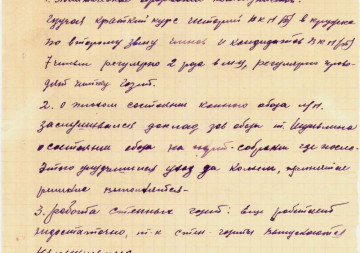 изучаем краткий курс истории ВКП(б) в кружке
по второму звену членов и кандидатов ВКП(б)
регулярно 2 раза в м-ц, регулярно прово-
дят читку газет.
2. О плохом состоянии конного обоза
заслушивался доклад зав обоза т.
о состоянии обоза на парт-собрании где после
этого улучшился уход за конями, принятые
решение выполняется-
3. работа стенных газет: еще работает
недостаточно, т-к стен-газеты выпускаются